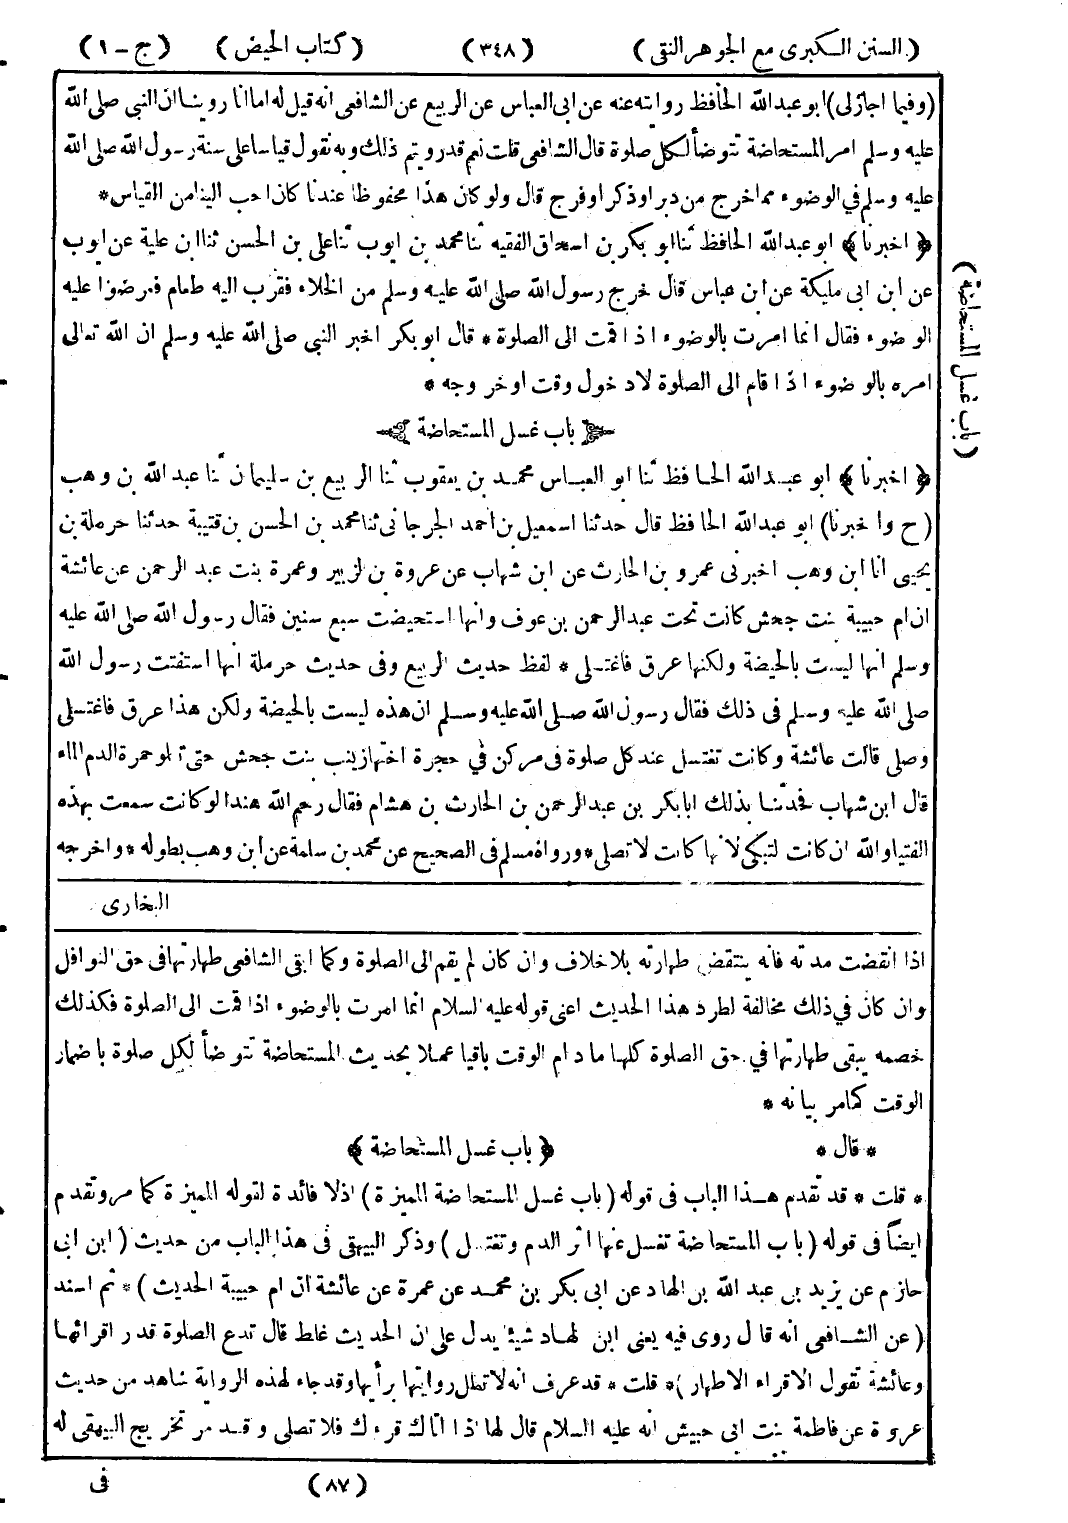 (السنن الكبرى مع الجوهر النقى) (٣٤٨) (كتاب الحيض) (ج - ١)
(وفيما اجازلى) ابو عبد الله الحافظ روايته عنه عن ابى العباس عن الربيع عن الشافعى انه قيل له اما انا روينا ان النبي صلى الله
عليه وسلم امر المستحاضة تتوضأ لكل صلوة قال الشافعى قلت نعم قد رويتم ذلك وبه نقول قياسا على سنة رسول الله صلى الله
عليه وسلم في الوضوء مما خرج من دبر او ذكر او فرج قال ولو كان هذا محفوظا عندنا كان احب الينا من القياس *
﴿ اخبرنا ﴾ ابو عبد الله الحافظ ثنا ابو بكر بن اسحاق الفقيه ثنا محمد بن ايوب ثنا على بن الحسن ثنا ابن علية عن ايوب
عن ابن ابى مليكة عن ابن عباس قال خرج رسول الله صلى الله عليه وسلم من الخلاء فقرب اليه طعام فعرضوا عليه
الوضوء فقال انما امرت بالوضوء اذا قمت الى الصلوة * قال ابو بكر اخبر النبي صلى الله عليه وسلم ان الله تعالى
امره بالوضوء اذا قام الى الصلوة لا دخول وقت او خروجه *
باب غسل المستحاضة
(باب غسل المستحاضة)
﴿ اخبرنا ﴾ ابو عبد الله الحافظ ثنا ابو العباس محمد بن يعقوب ثنا الربيع بن سليمان ثنا عبد الله بن وهب
(ح واخبرنا) ابو عبد الله الحافظ قال حدثنا اسمعيل بن احمد الجرجانى ثنا محمد بن الحسن بن قتيبة حدثنا حرملة بن
يحيى أنا ابن وهب اخبرنى عمرو بن الحارث عن ابن شهاب عن عروة بن الزبير وعمرة بنت عبد الرحمن عن عائشة
ان ام حبيبة بنت جحش كانت تحت عبد الرحمن بن عوف وانها استحيضت سبع سنين فقال رسول الله صلى الله عليه
وسلم انها ليست بالحيضة ولكنها عرق فاغتسلى * لفظ حديث الربيع وفى حديث حرملة انها استفتت رسول الله
صلى الله عليه وسلم فى ذلك فقال رسول الله صلى الله عليه وسلم ان هذه ليست بالحيضة ولكن هذا عرق فاغتسلى
وصلى قالت عائشة وكانت تغتسل عند كل صلوة فى مركن في حجرة اختها زينب بنت جحش حتى تعلو حمرة الدم الماء
قال ابن شهاب فحدثنا بذلك ابا بكر بن عبد الرحمن بن الحارث بن هشام فقال رحم الله هندا لو كانت سمعت بهذه
الفتيا والله ان كانت لتبكى لانها كانت لا تصلى * ورواه مسلم فى الصحيح عن محمد بن سلمة عن ابن وهب بطوله * واخرجه
البخارى
اذا انقضت مدته فانه ينتقض طهارته بلا خلاف وان كان لم يقم الى الصلوة وكما ابقى الشافعى طهارتها فى حق النوافل
وان كان في ذلك مخالفة لطرد هذا الحديث اعنى قوله عليه السلام انما امرت بالوضوء اذا قمت الى الصلوة فكذلك
خصمه يبقى طهارتها في حق الصلوة كلها ما دام الوقت باقيا عملا بحديث المستحاضة تتوضأ لكل صلوة باضمار
الوقت كما مر بيانه *
* قال * ﴿ باب غسل المستحاضة ﴾
* قلت * قد تقدم هذا الباب فى قوله (باب غسل المستحاضة المميزة) اذ لا فائدة لقوله المميزة كما مر وتقدم
ايضاً فى قوله (باب المستحاضة تغسل عنها اثر الدم وتغتسل) وذكر البيهقى فى هذا الباب من حديث (ابن ابى
حازم عن يزيد بن عبد الله بن الهاد عن ابى بكر بن محمد عن عمرة عن عائشة ان ام حبيبة الحديث) * ثم اسند
(عن الشافعى انه قال روى فيه يعنى ابن الهاد شيئا يدل على ان الحديث غلط قال تدع الصلوة قدر اقرائها
وعائشة تقول الاقراء الاطهار) * قلت * قد عرف انه لا تعلل روايتها برأيها وقد جاء لهذه الرواية شاهد من حديث
عروة عن فاطمة بنت ابى حبيش انه عليه السلام قال لها اذا اتاك قرءك فلا تصلى وقد مر تخريج البيهقى له
(٨٧) فى